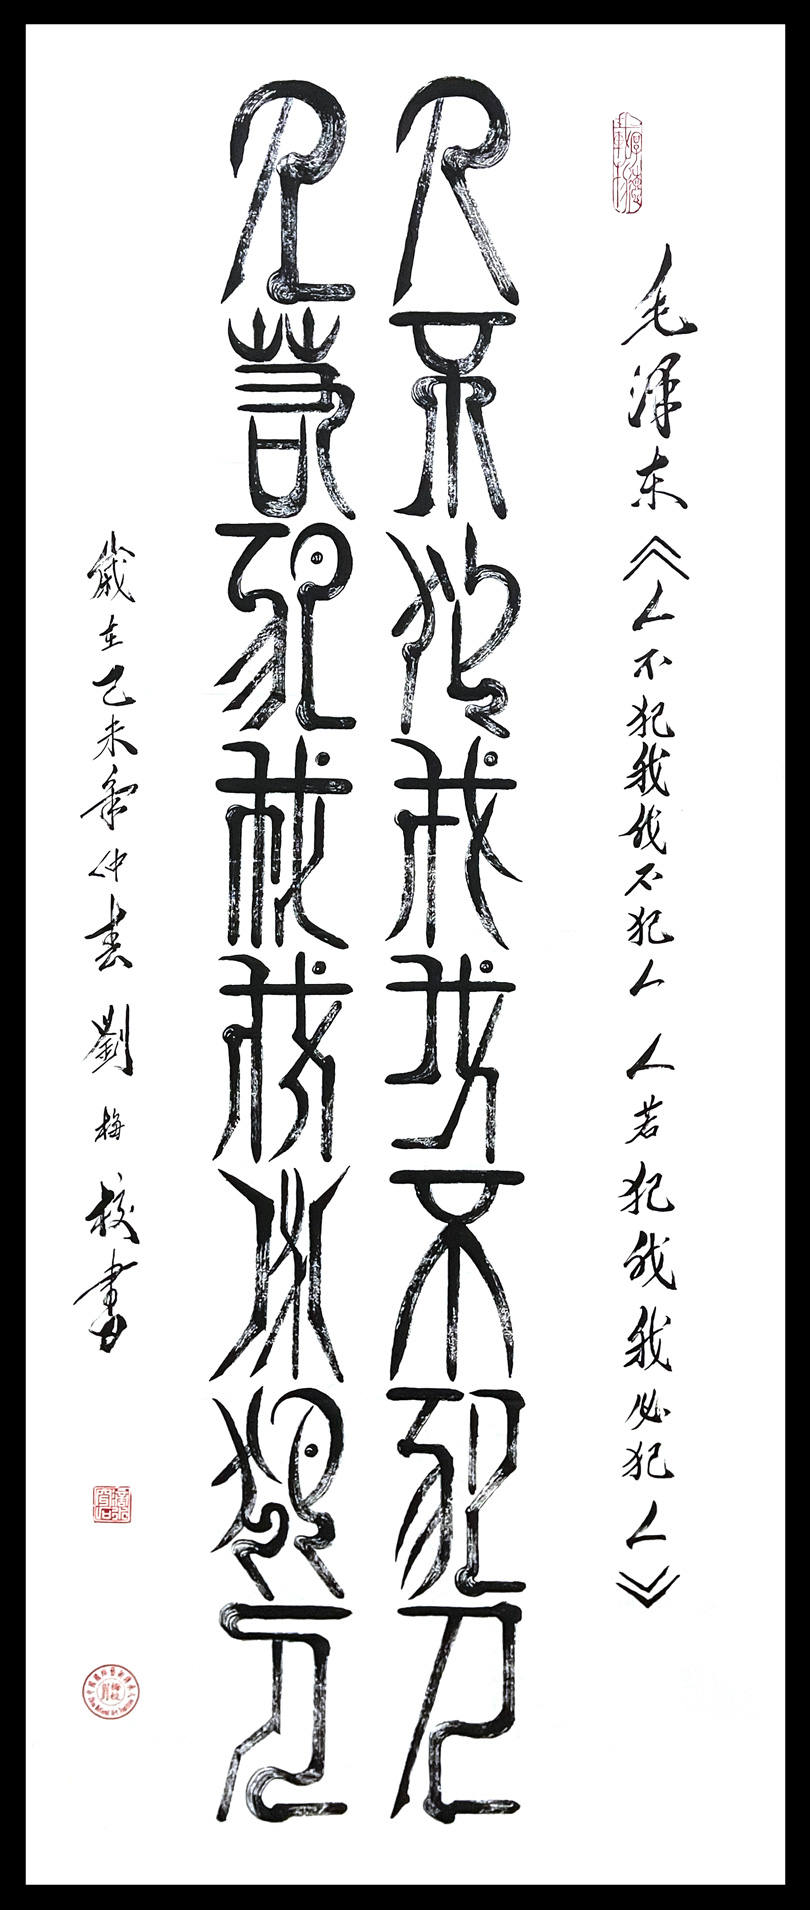 毛泽东《人不犯我我不犯人 人若犯我我必犯人》
人不犯我我不犯人
人若犯我我必犯人
歲在己未年仲春 劉梅校書